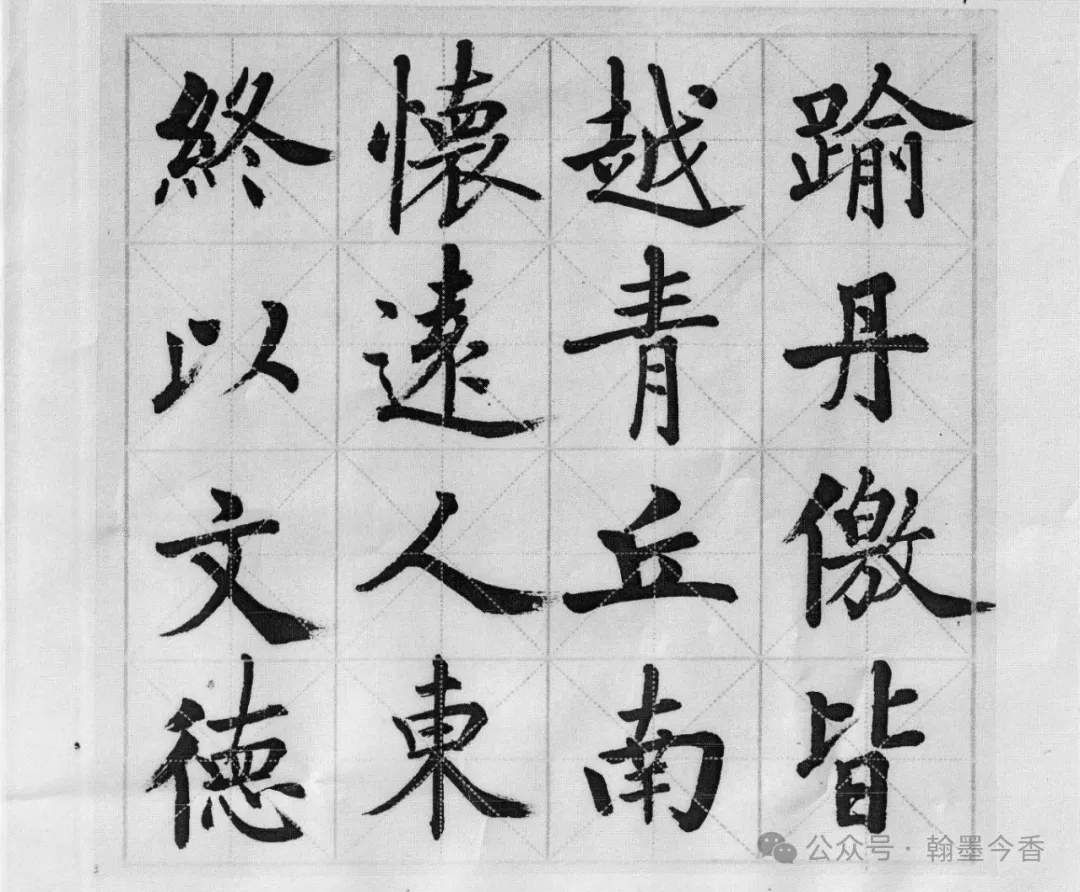 終以文德
懷遠人東
越青丘南
踰丹儌皆
公众号·翰墨今香